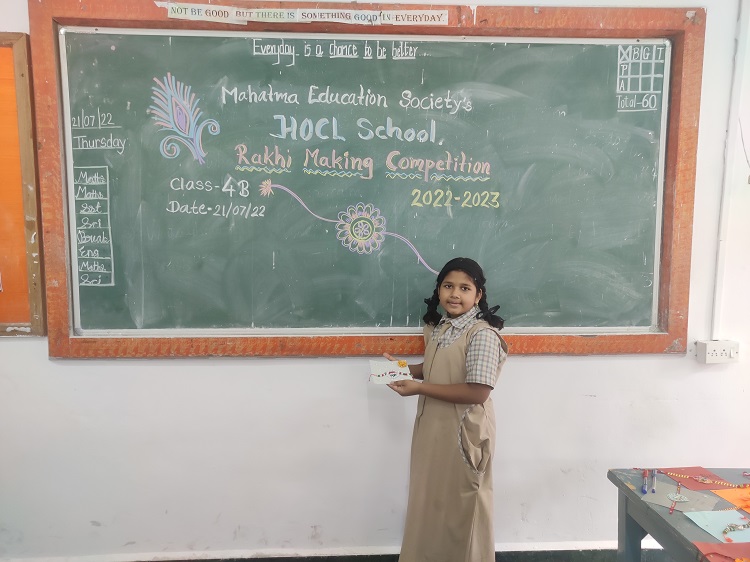 NOT BE GOOD BUT THERE IS SOMETHING GOOD IN EVERYDAY.
Everyday is a chance to be better
X B G T
P
A
Total-60
21/07/22
Thursday
Mahatma Education Society's
HOCL School.
Rakhi Making Competition
Class-4B
2022-2023
Date-21/07/22
Maths
Maths
Sst
Sci
Break
Eng
Maths
Sci